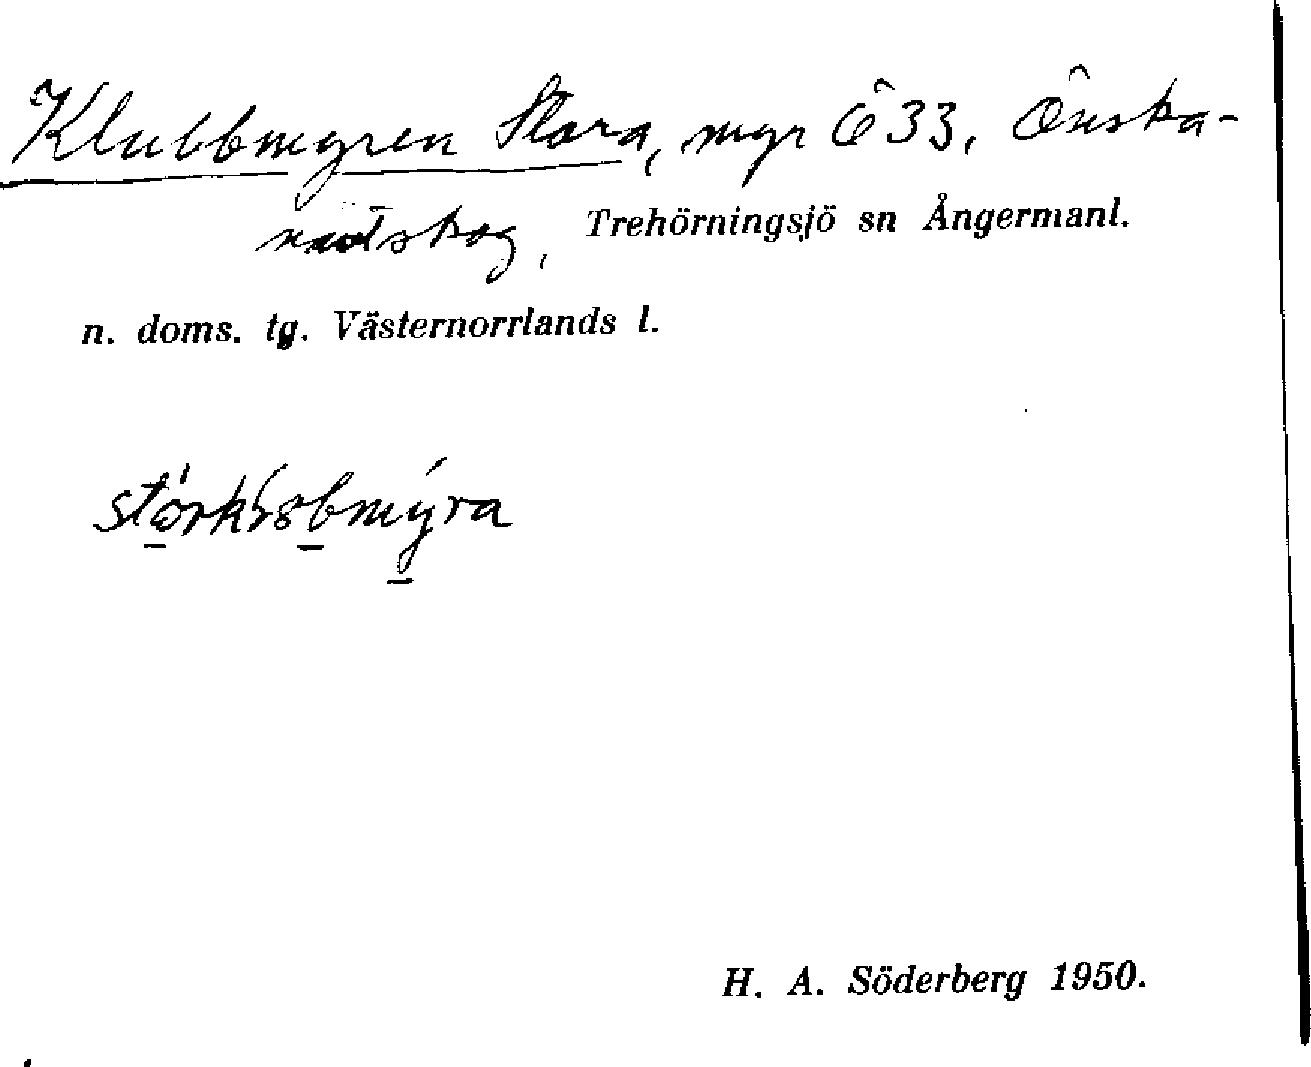 Klubbmyren Stora, myr Ö 33, Önska-
nätskog, Trehörningsjö sn Ångermanl.
n. doms. tg. Västernorrlands l.
H. A. Söderberg 1950.